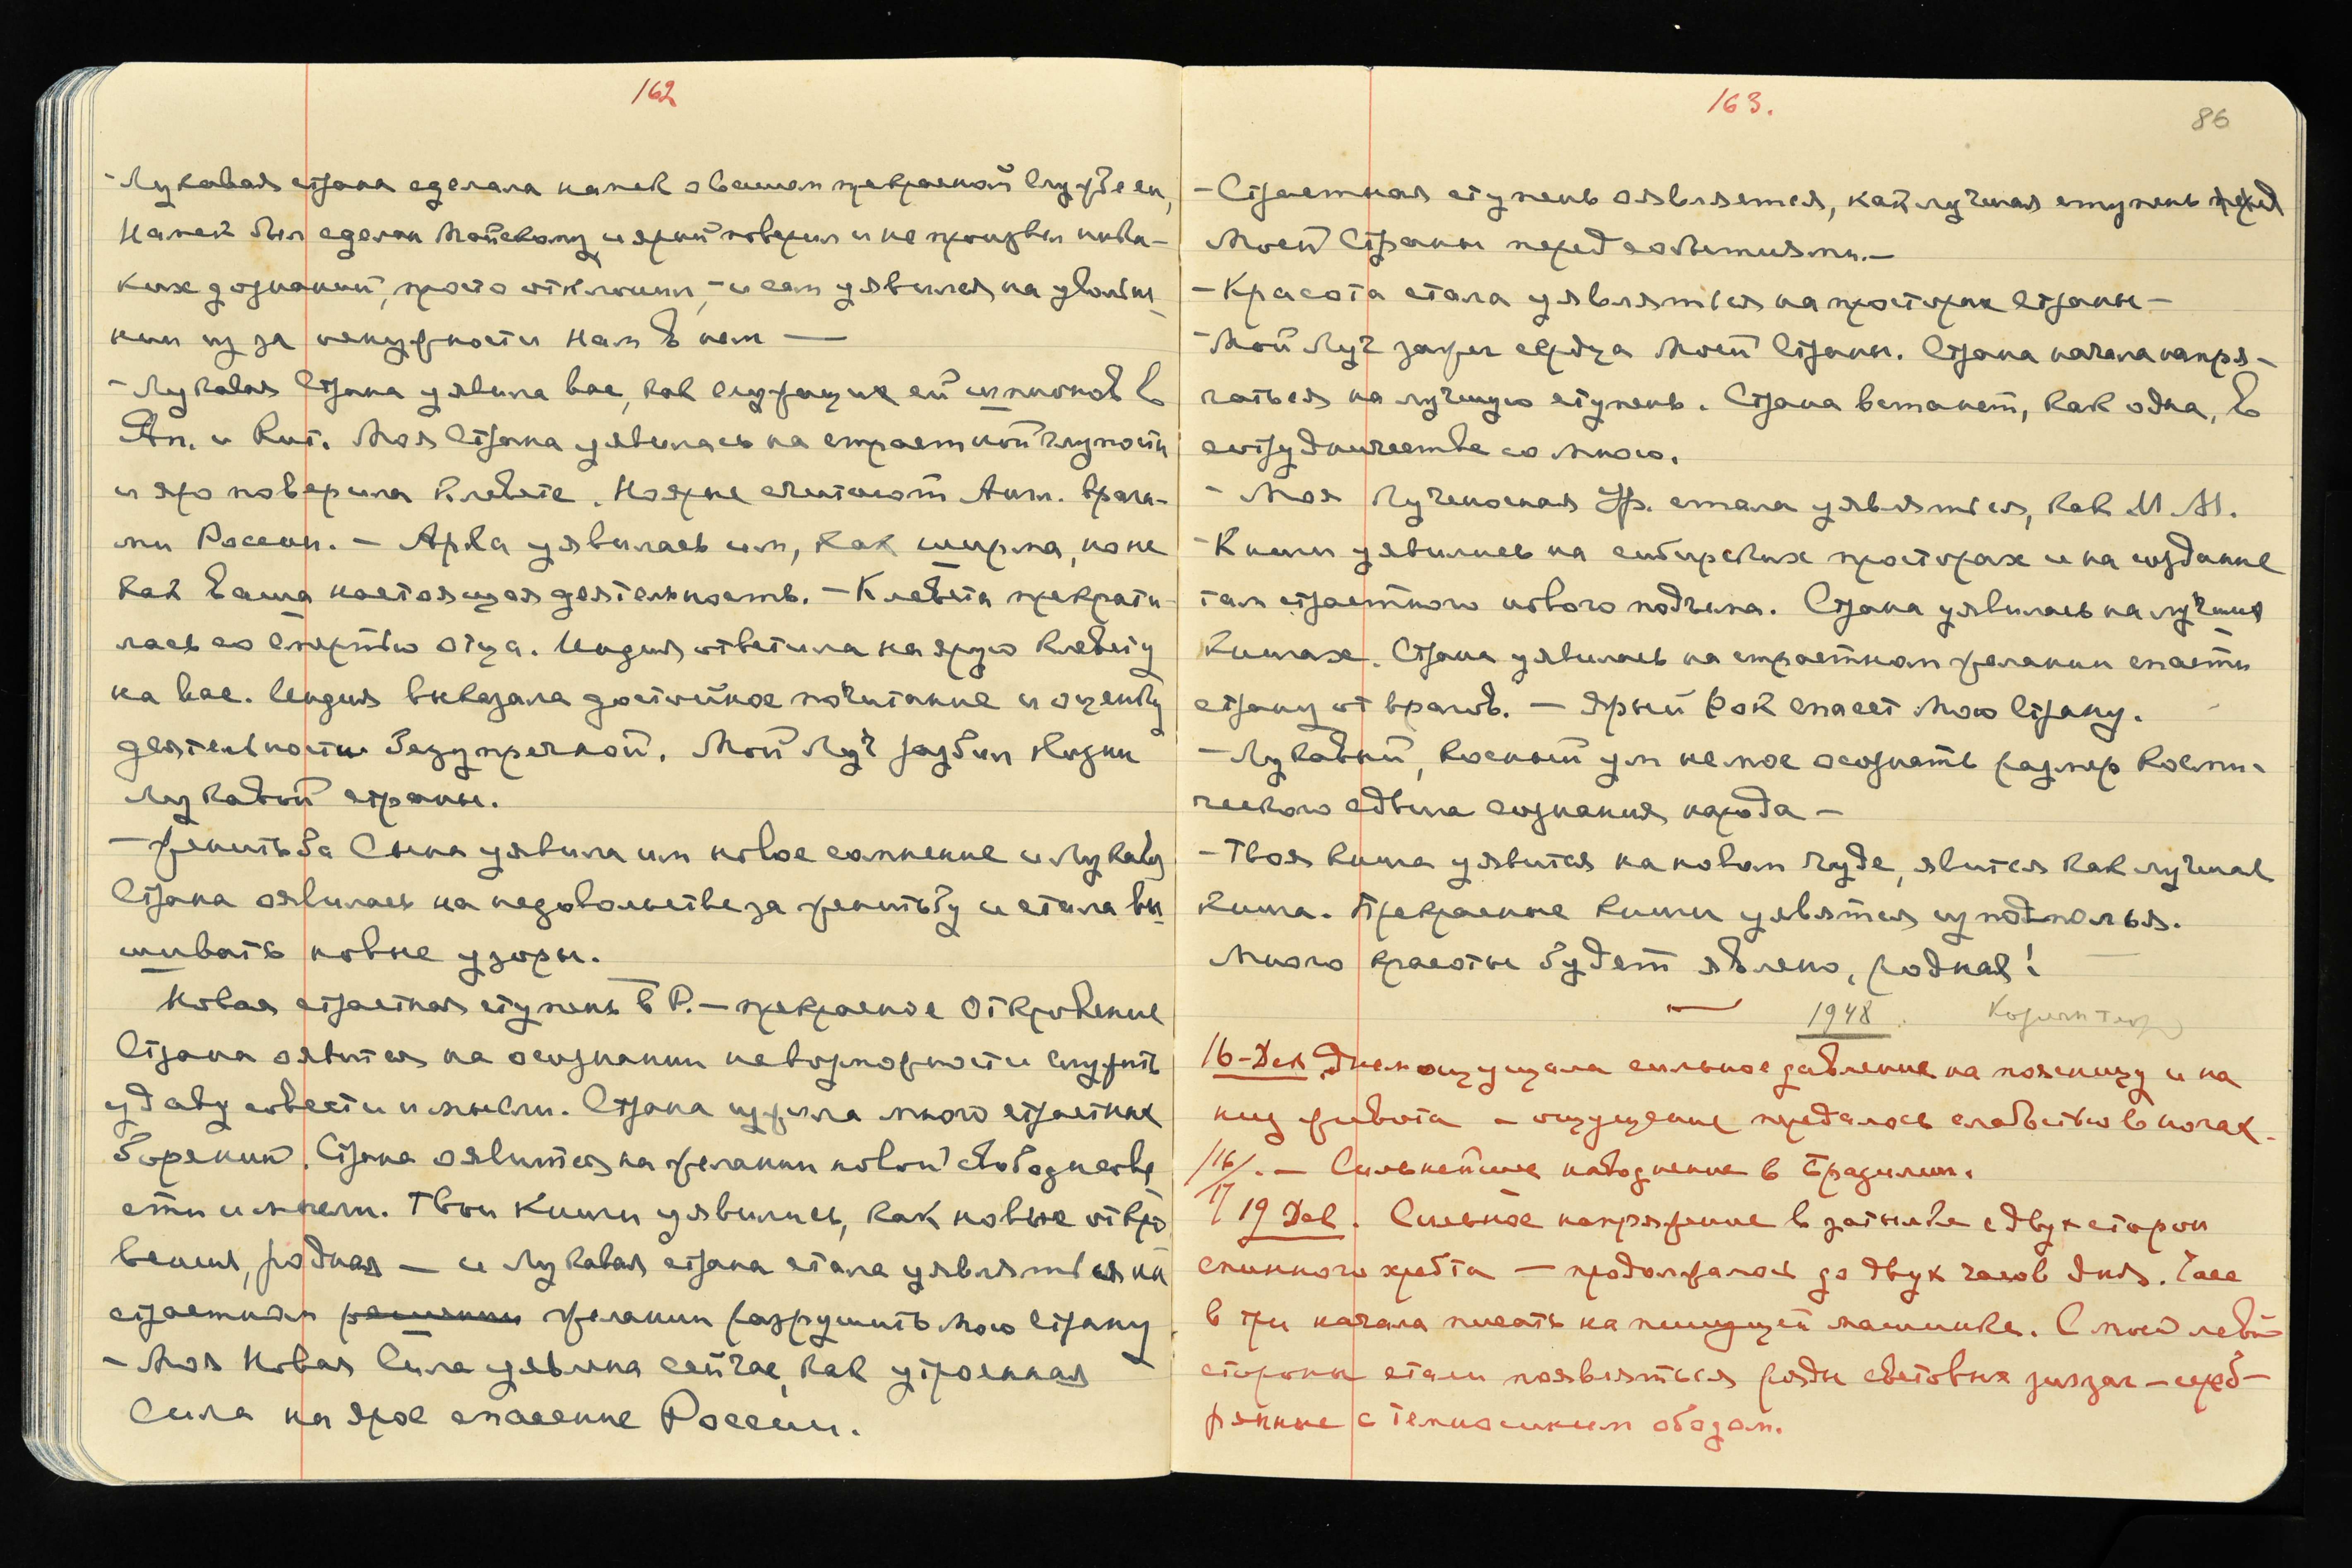 162
- Лукавая страна сделала намек о вашем прекрасной Службе ей,
Намек был сделан Майскому и ярый поверил и не произвел ника-
ких дознаний, просто отклонил, - и сам уявился на увольне-
нии из за ненужности Нам в нем —
- Лукавая Страна уявила вас, как служащих ей шпионов в
Яп. и Кит. Моя Страна уявилась на страстной глупости
и яро поверила Клевете. Но ярые считают Англ. врага-
ми России. - Арха уявилась им, как ширма, но не
как ваша настоящая деятельность. - Клевета прекрати-
лась со смертью отца. Индия ответила на ярую Клевету
на вас. Индия выказала достойное почитание и оценку
деятельности безупречной. Мой Луч разбил Козни
Лукавой страны.
- Женитьба Сына уявила им новое сомнение и Лукавая
Страна оявилась на недовольстве за женитьбу и стала вы-
шивать новые узоры.
Новая страстная ступень в Р. - прекрасное Откровение
Страна оявится на осознании невозможности служить
удаву совести и мысли. Страна изжила много страстных
борений. Страна оявится на желании новой свободы сове
сти и мысли. Твои Книги уявились, как новые откро
вения, родная — и Лукавая страна стала уявляться на
страстном решении желании разрушить мою Страну
- Моя Новая Сила уявлена сейчас, как утроенная
Сила на ярое спасение России.
163.
86
- Страстная ступень оявляется, как лучшая ступень перед
Моей Страны перед событиями. -
- Красота стала уявляться на просторах Страны -
- Мой Луч зажег сердца Моей Страны. Страна начала напря-
гаться на лучшую ступень. Страна встанет, как одна, в
сотрудничестве со мною.
- Моя Лученосная Ур. стала уявляться, как М. М.
- Книги уявились на сибирских просторах и на создание
там страстного нового подъема. Страна уявилась на лучших
Книгах. Страна уявилась на страстном желании спасти
страну от врагов. — Ярый Рок спасет мою Страну.
- Лукавый, косный ум не мог осознать размер Косми-
ческого сдвига сознания народа —
- Твоя Книга уявится на новом чуде, явится как лучшая
Книга. Прекрасные Книги уявятся из подполья.
Много красоты будет явлено, родная!
1948
16 - Дек. Днем ощущала сильное давление на поясницу и на
низ живота - ощущение предалось слабостью в ногах -
/16/17. - Сильнейшие наводнение в Бразилии.
19 Дек. Сильное напряжение в затылке с двух сторон
спинного хребта — продолжалось до двух часов дня. Часа
в три начала писать на пишущей машинке. С моей левой
стороны стали появляться ряды световых зигзаг - сереб-
рянные с темносиним ободом.